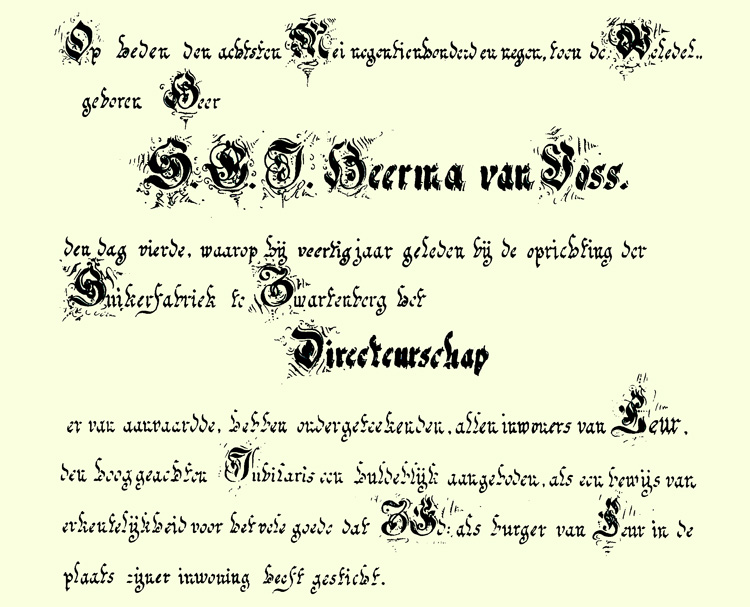 Op heden den achtsten Mei negentienhonderd en negen, toen de Weledel..
geboren Heer
S. E. J. Heerma van Voss.
den dag vierde, waarop hij veertig jaar geleden bij de oprichting der
Suikerfabriek te Zwartenberg het
Directeurschap
er van aanvaardde, hebben ondergeteekenden, allen inwoners van Leur,
den hooggeachten Jubilaris een huldeblijk aangeboden, als een bewijs van
erkentelijkheid voor het vele goede dat ZEd: als burger van Leur in de
plaats zijner inwoning heeft gesticht.